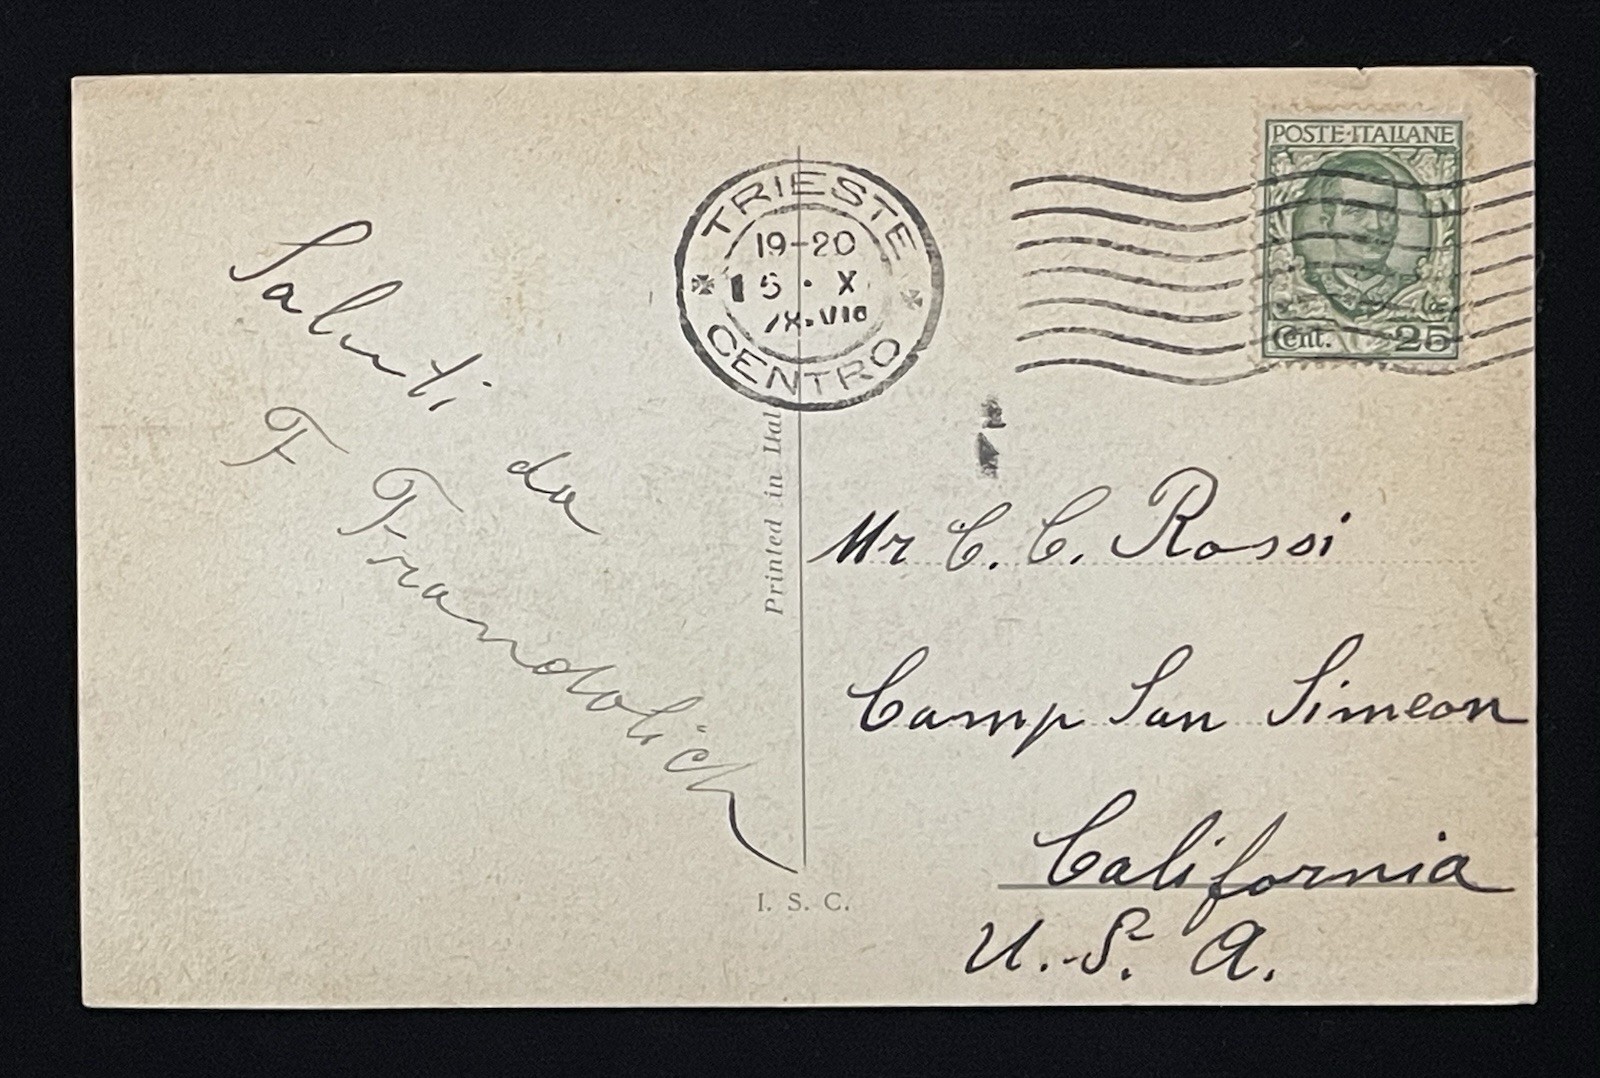 Saluti da
F Frandolich
Printed in Ital
I. S. C.
TRIESTE
19-20
5 · X
CENTRO
POSTE·ITALIANE
Cent. 25
Mr C. C. Rossi
Camp San Simeon
California
U.S.A.